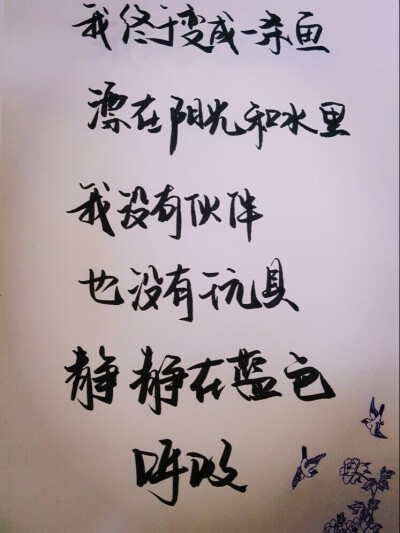 我终于变成一条鱼
漂在阳光和水里
我没有伙伴
也没有玩具
静静在蓝色
呼吸